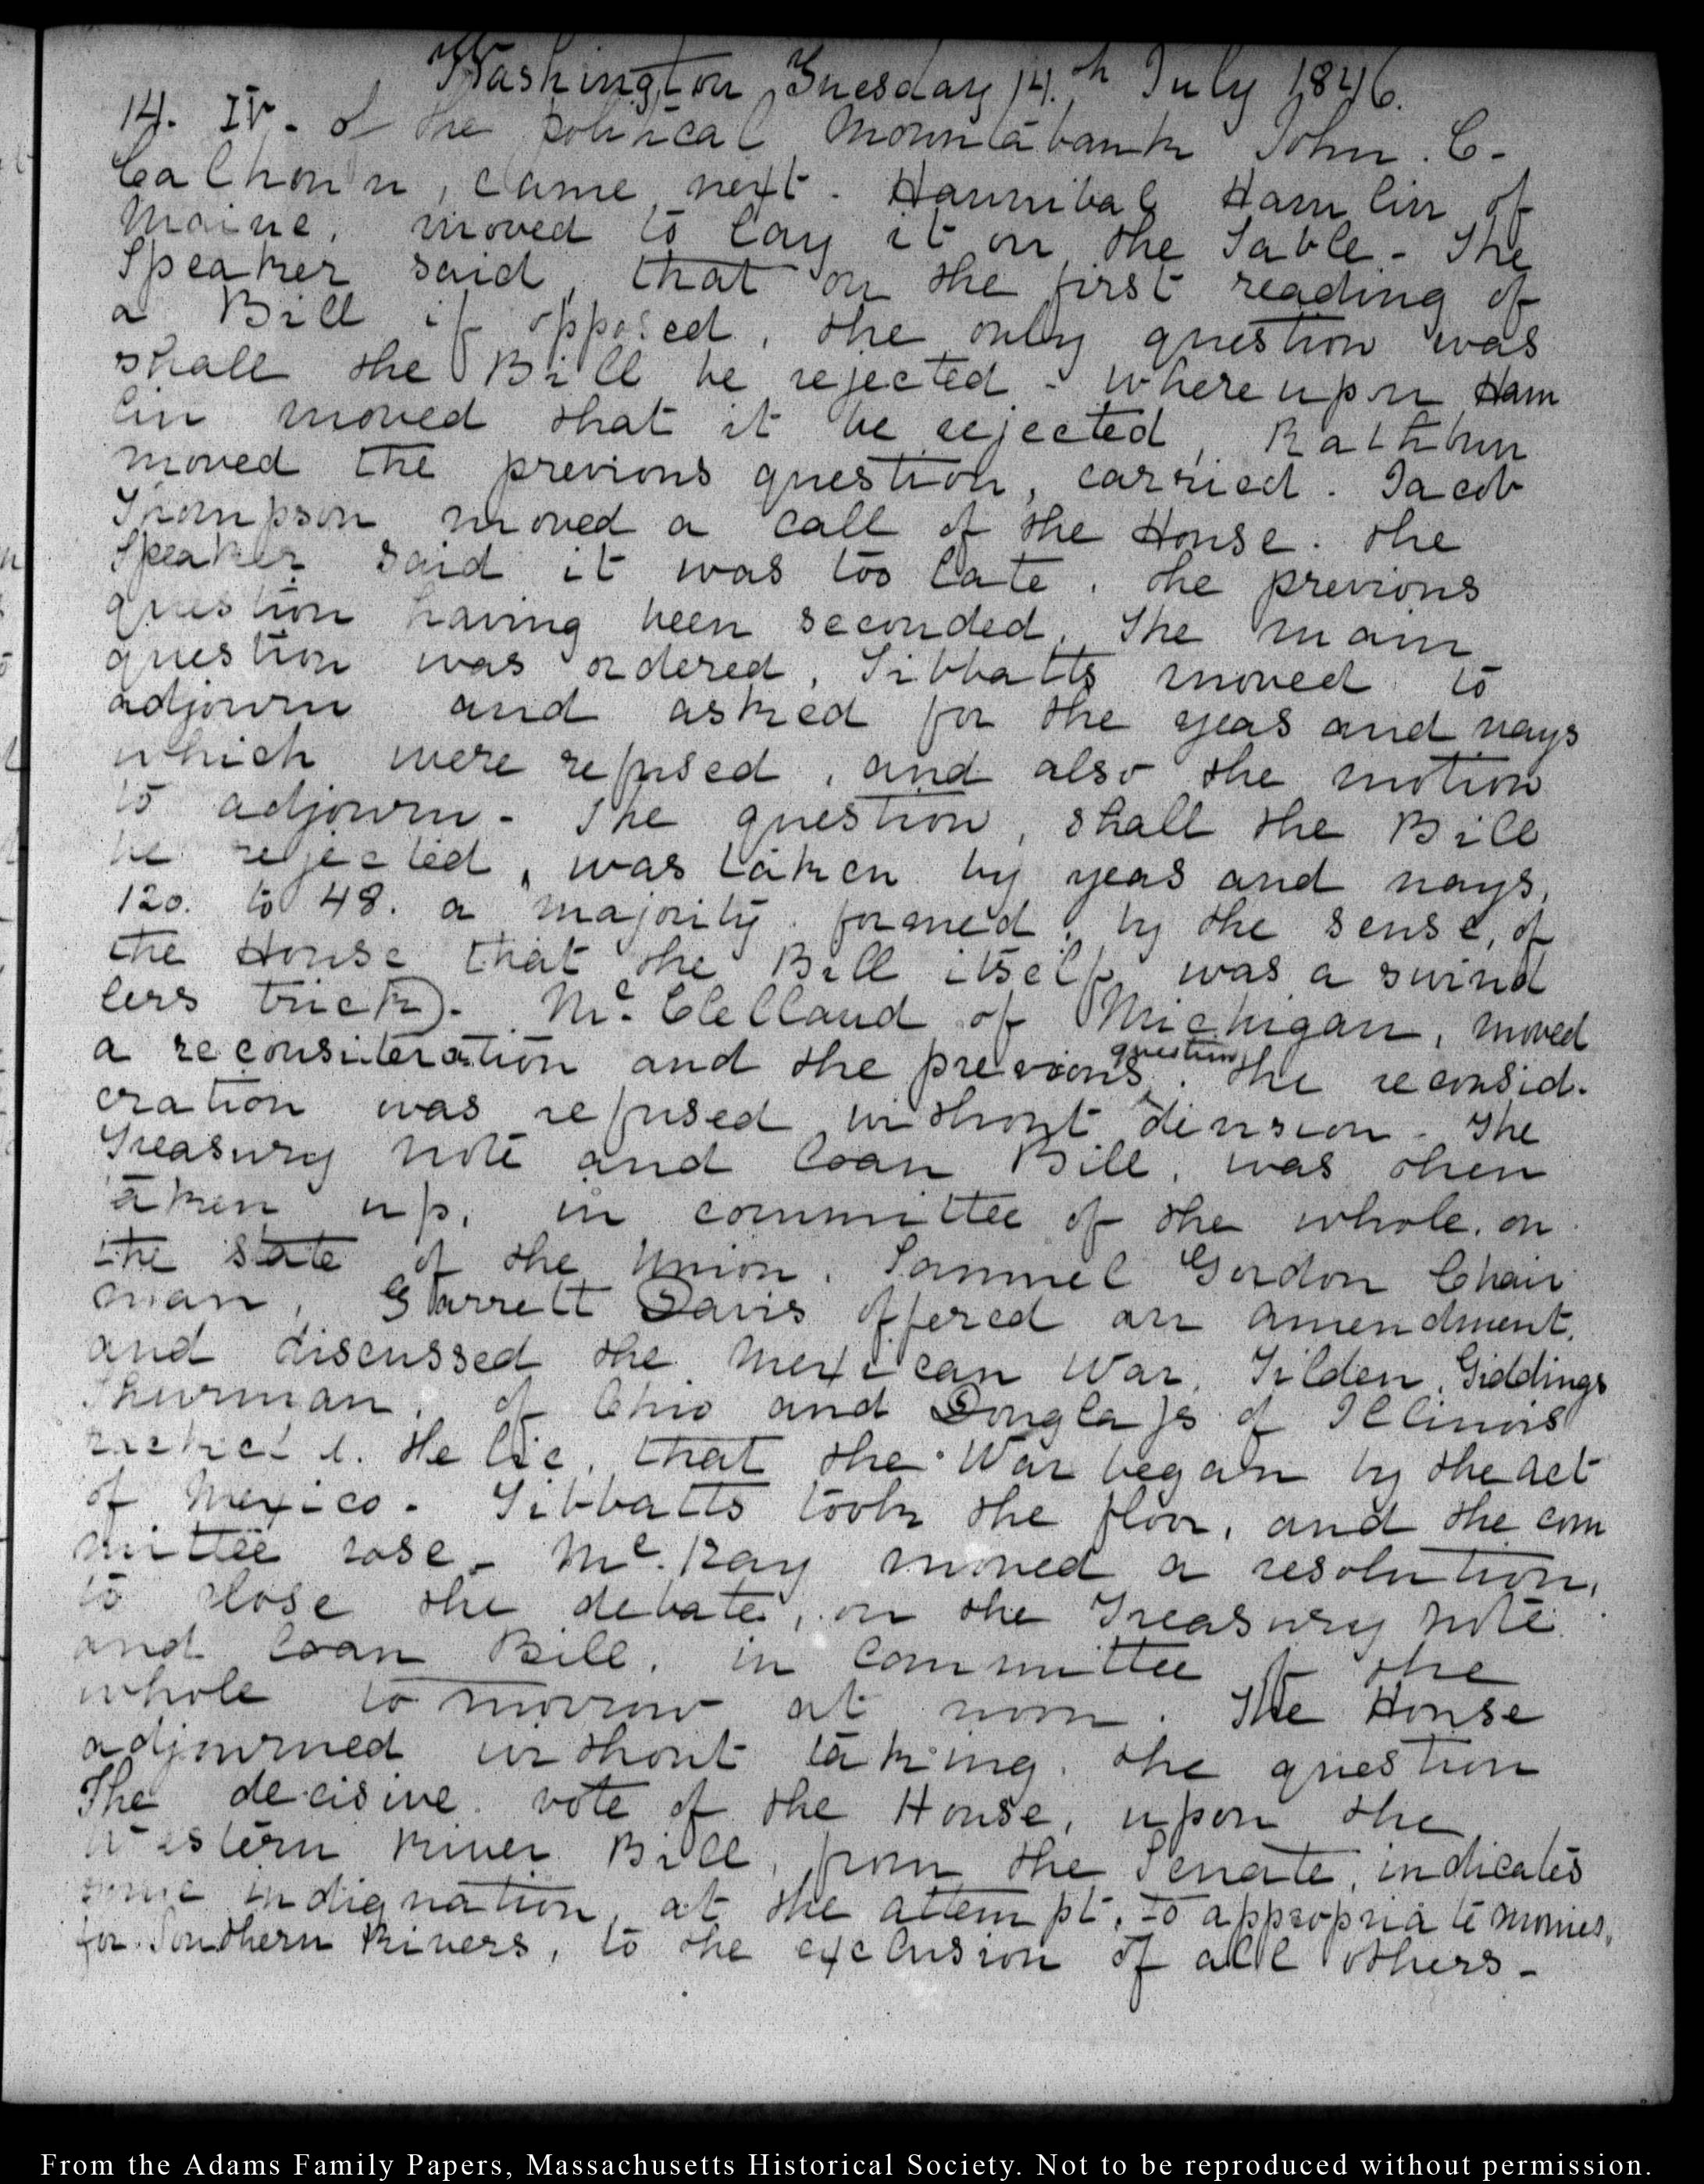 Washington Tuesday 14.th July 1846.
14. IV. of the political Mountabank John. C.
Calhoun, came next. Hannibal Hamlin of
Maine, moved to lay it on the Table - The
Speaker said, that on the first reading of
a Bill if opposed, the only question was
shall the Bill be rejected - whereupon Ham
lin moved that it be rejected, Rathbun
moved the previous question, carried. Jacob
Thompson moved a call of the House. the
Speaker said it was too late, the previous
question having been seconded. The main
question was ordered, Tibbatts moved to
adjourn and asked for the yeas and nays
which were refused, and also the motion
to adjourn - The question, shall the Bill
be rejected, was taken by yeas and nays,
120. to 48. a majority formed, by the sense, of
the House that the Bill itself was a swind
lers trick). Mc. Clelland of Michigan, moved
a reconsideration and the previous question. the reconsid.
eration was refused without division - The
Treasury note and loan Bill, was then
taken up, in committee of the whole. on
the state of the Union. Samuel Gordon Chair
man, Garrett Davis offered an amendment.
and discussed the Mexican War. Tilden, Giddings
Thurman, of Ohio and Douglass of Illinois
the lie, that the War began by the act
of Mexico - Tibbatts took the floor, and the com
mittee rose - Mc. Kay moved a resolution,
to close the debate, on the Treasury note
and loan Bill, in committee of the
whole to morrow at noon. The House
adjourned without taking the question
The decisive vote of the House, upon the
Western River Bill, from the Senate, indicates
some indignation, at the attempt, to appropriate monies,
for Southern Rivers, to the exclusion of all others -
From the Adams Family Papers, Massachusetts Historical Society. Not to be reproduced without permission.